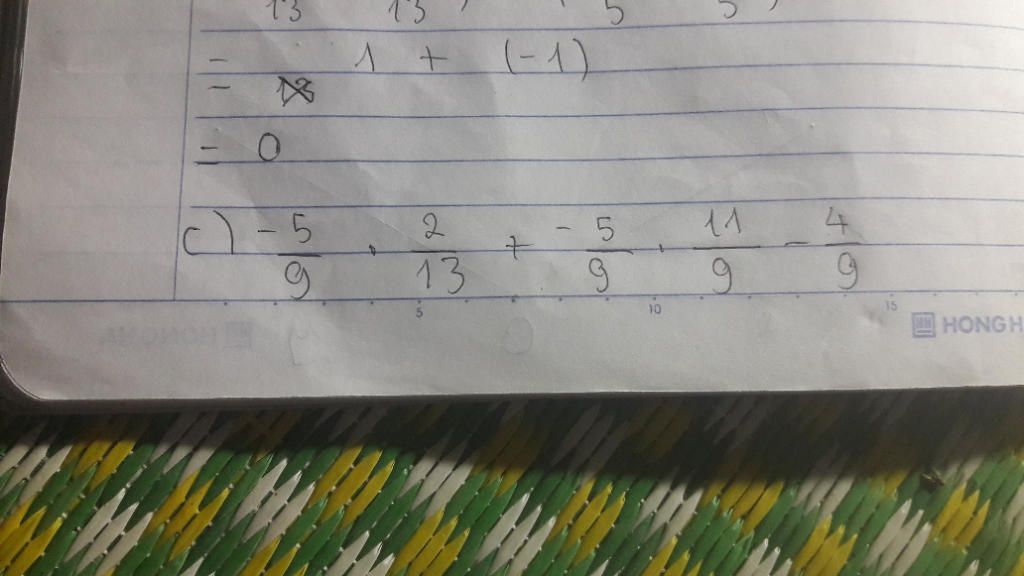 13 13 5 5
= 1 + (-1)
=
= 0
c) -5/9 . 2/13 + -5/9 . 11/9 - 4/9
5 10 15
HONG H